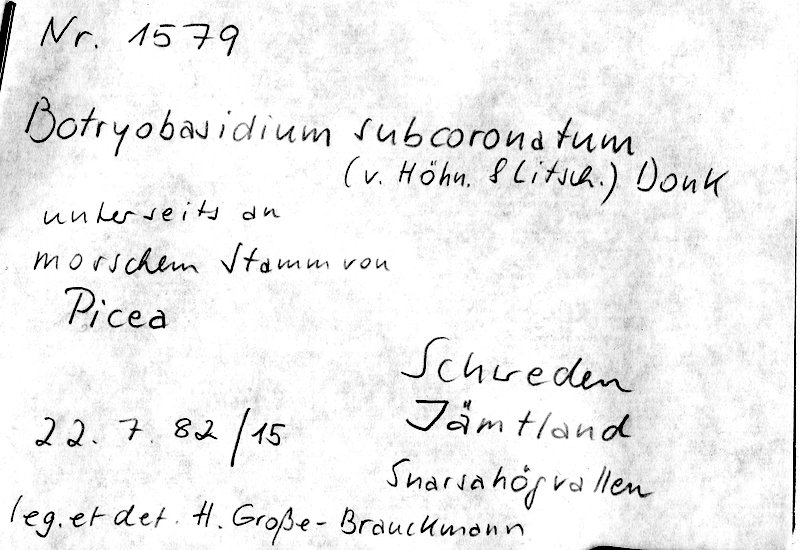 Nr. 1579
Botryobasidium subcoronatum
(v. Höhn. & Litsch.) Donk
unterseits an
morschem Stamm von
Picea
Schweden
Jämtland
22. 7. 82/15
Snarsahögvallen
leg. et det. H. Große-Brauckmann